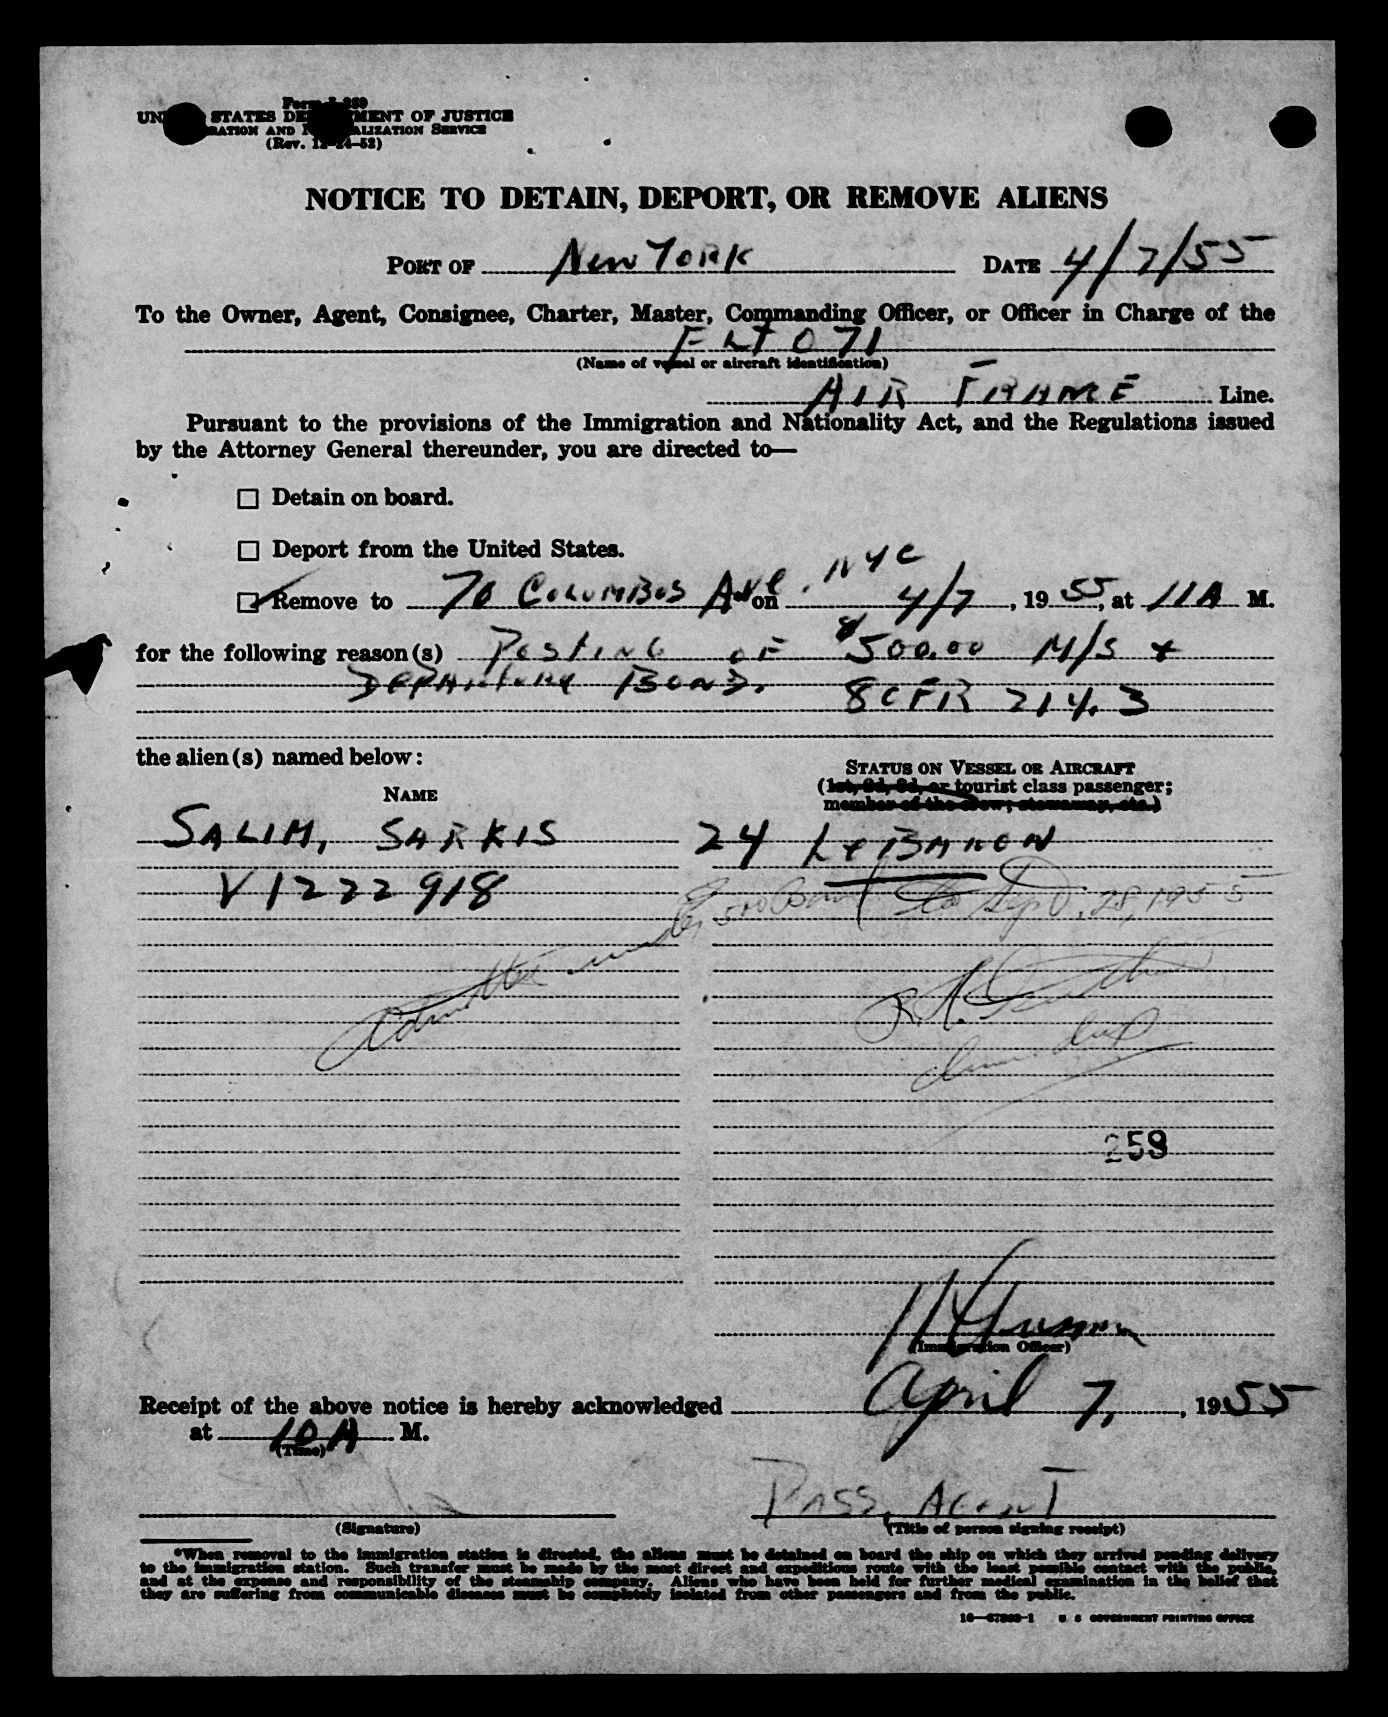 Form I-259
STATES DE MENT OF JUSTICE
RATION AND N ALIZATION SERVICE
(Rev. 12-24-52)
NOTICE TO DETAIN, DEPORT, OR REMOVE ALIENS
PORT OF New York DATE 4/7/55
To the Owner, Agent, Consignee, Charter, Master, Commanding Officer, or Officer in Charge of the
FLT 071
(Name of vessel or aircraft identification)
AIR FRANCE Line.
Pursuant to the provisions of the Immigration and Nationality Act, and the Regulations issued
by the Attorney General thereunder, you are directed to—
☐ Detain on board.
☐ Deport from the United States.
☑ Remove to 70 COLUMBUS AVE, NYC on 4/7, 1955, at 11 A M.
for the following reason(s) POSTING OF $500.00 M/S &
DEPARTURE BOND. 8 CFR 214.3
the alien(s) named below:
NAME
STATUS ON VESSEL OR AIRCRAFT
(1st, 2d, 3d, or tourist class passenger;
member of the crew; stowaway, etc.)
SALIM, SARKIS 24 LEBANON
V1222918
Admitted under $500 Bond to Sept. 28, 1955
R. A.
259
(Immigration Officer)
Receipt of the above notice is hereby acknowledged April 7, 1955
at 10 A M.
(Time)
PASS. AGENT
(Signature)
(Title of person signing receipt)
*When removal to the immigration station is directed, the aliens must be detained on board the ship on which they arrived pending delivery
to the immigration station. Such transfer must be made by the most direct and expeditious route with the least possible contact with the public,
and at the expense and responsibility of the steamship company. Aliens who have been held for further medical examination in the belief that
they are suffering from communicable diseases must be completely isolated from other passengers and from the public.
U. S. GOVERNMENT PRINTING OFFICE